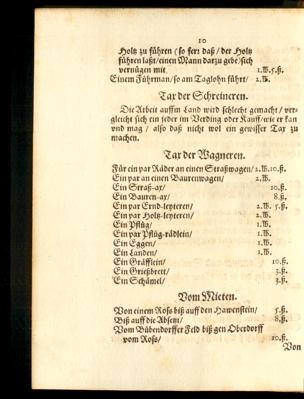 10
Holtz zu führen / so fern daß / der Holtz
führen laßt / einen Mann darzu gebe / sich
vernügen mit 1.℔.5.ß.
Einem Führman / so am Taglohn führt / 2.℔.
Tax der Schreineren.
Die Arbeit auffm Land wird schlecht gemacht / ver-
gleicht sich ein jeder im Verding oder Kauff / wie er kan
vnd mag / also daß nicht wol ein gewisser Tax zu
machen.
Tax der Wagneren.
Für ein par Räder an einen Straßwagen / 2.℔.10.ß.
Ein par an einen Baurenwagen / 2.℔.
Ein Straß-ax / 10.ß.
Ein Bauren-ax / 8.ß.
Ein par Ernd-leyteren / 2.℔. 5.ß.
Ein par Holtz-leyteren / 2.℔.
Ein Pflüg / 1.℔.
Ein par Pflüg-rädlein / 1.℔.
Ein Eggen / 1.℔.
Ein Landen / 1.℔.
Ein Gräfflein / 10.ß.
Ein Grießbrett / 3.ß.
Ein Schämel / 3.ß.
Vom Mieten.
Von einem Roß biß auff den Hawenstein / 5.ß.
Biß auff die 8.ß.
Vom Bübendorffer Feld biß gen Oberdorff
vom Roß / 10.ß.
Von